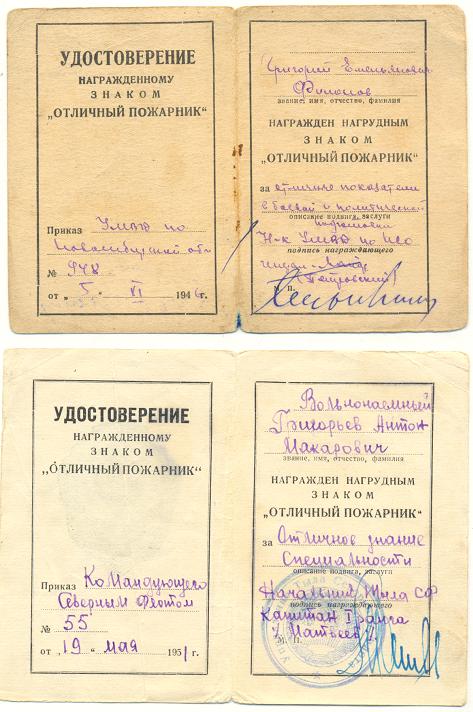 УДОСТОВЕРЕНИЕ
НАГРАЖДЕННОМУ
ЗНАКОМ
„ОТЛИЧНЫЙ ПОЖАРНИК“
Приказ УМВД по
Новосибирской обл
№
от „ 5 “ VI 1946 г.
Григорий Емельянович
звание, имя, отчество, фамилия
НАГРАЖДЕН НАГРУДНЫМ
ЗНАКОМ
„ОТЛИЧНЫЙ ПОЖАРНИК“
за отличные показатели
в боевой и политической
описание подвига, заслуги
подготовки
Н-к УМВД по НСО
подпись награждающего
(Петровский)
п.
УДОСТОВЕРЕНИЕ
НАГРАЖДЕННОМУ
ЗНАКОМ
„ОТЛИЧНЫЙ ПОЖАРНИК“
Приказ Командующего
Северным Флотом
№ 55
от „ 19 “ мая 1951 г.
Вольнонаемный
Григорьев Антон
Макарович
звание, имя, отчество, фамилия
НАГРАЖДЕН НАГРУДНЫМ
ЗНАКОМ
„ОТЛИЧНЫЙ ПОЖАРНИК“
за Отличное знание
Специальности
описание подвига, заслуги
Начальник Тыла СФ
подпись награждающего
капитан I ранга
Матвеев
М. П.